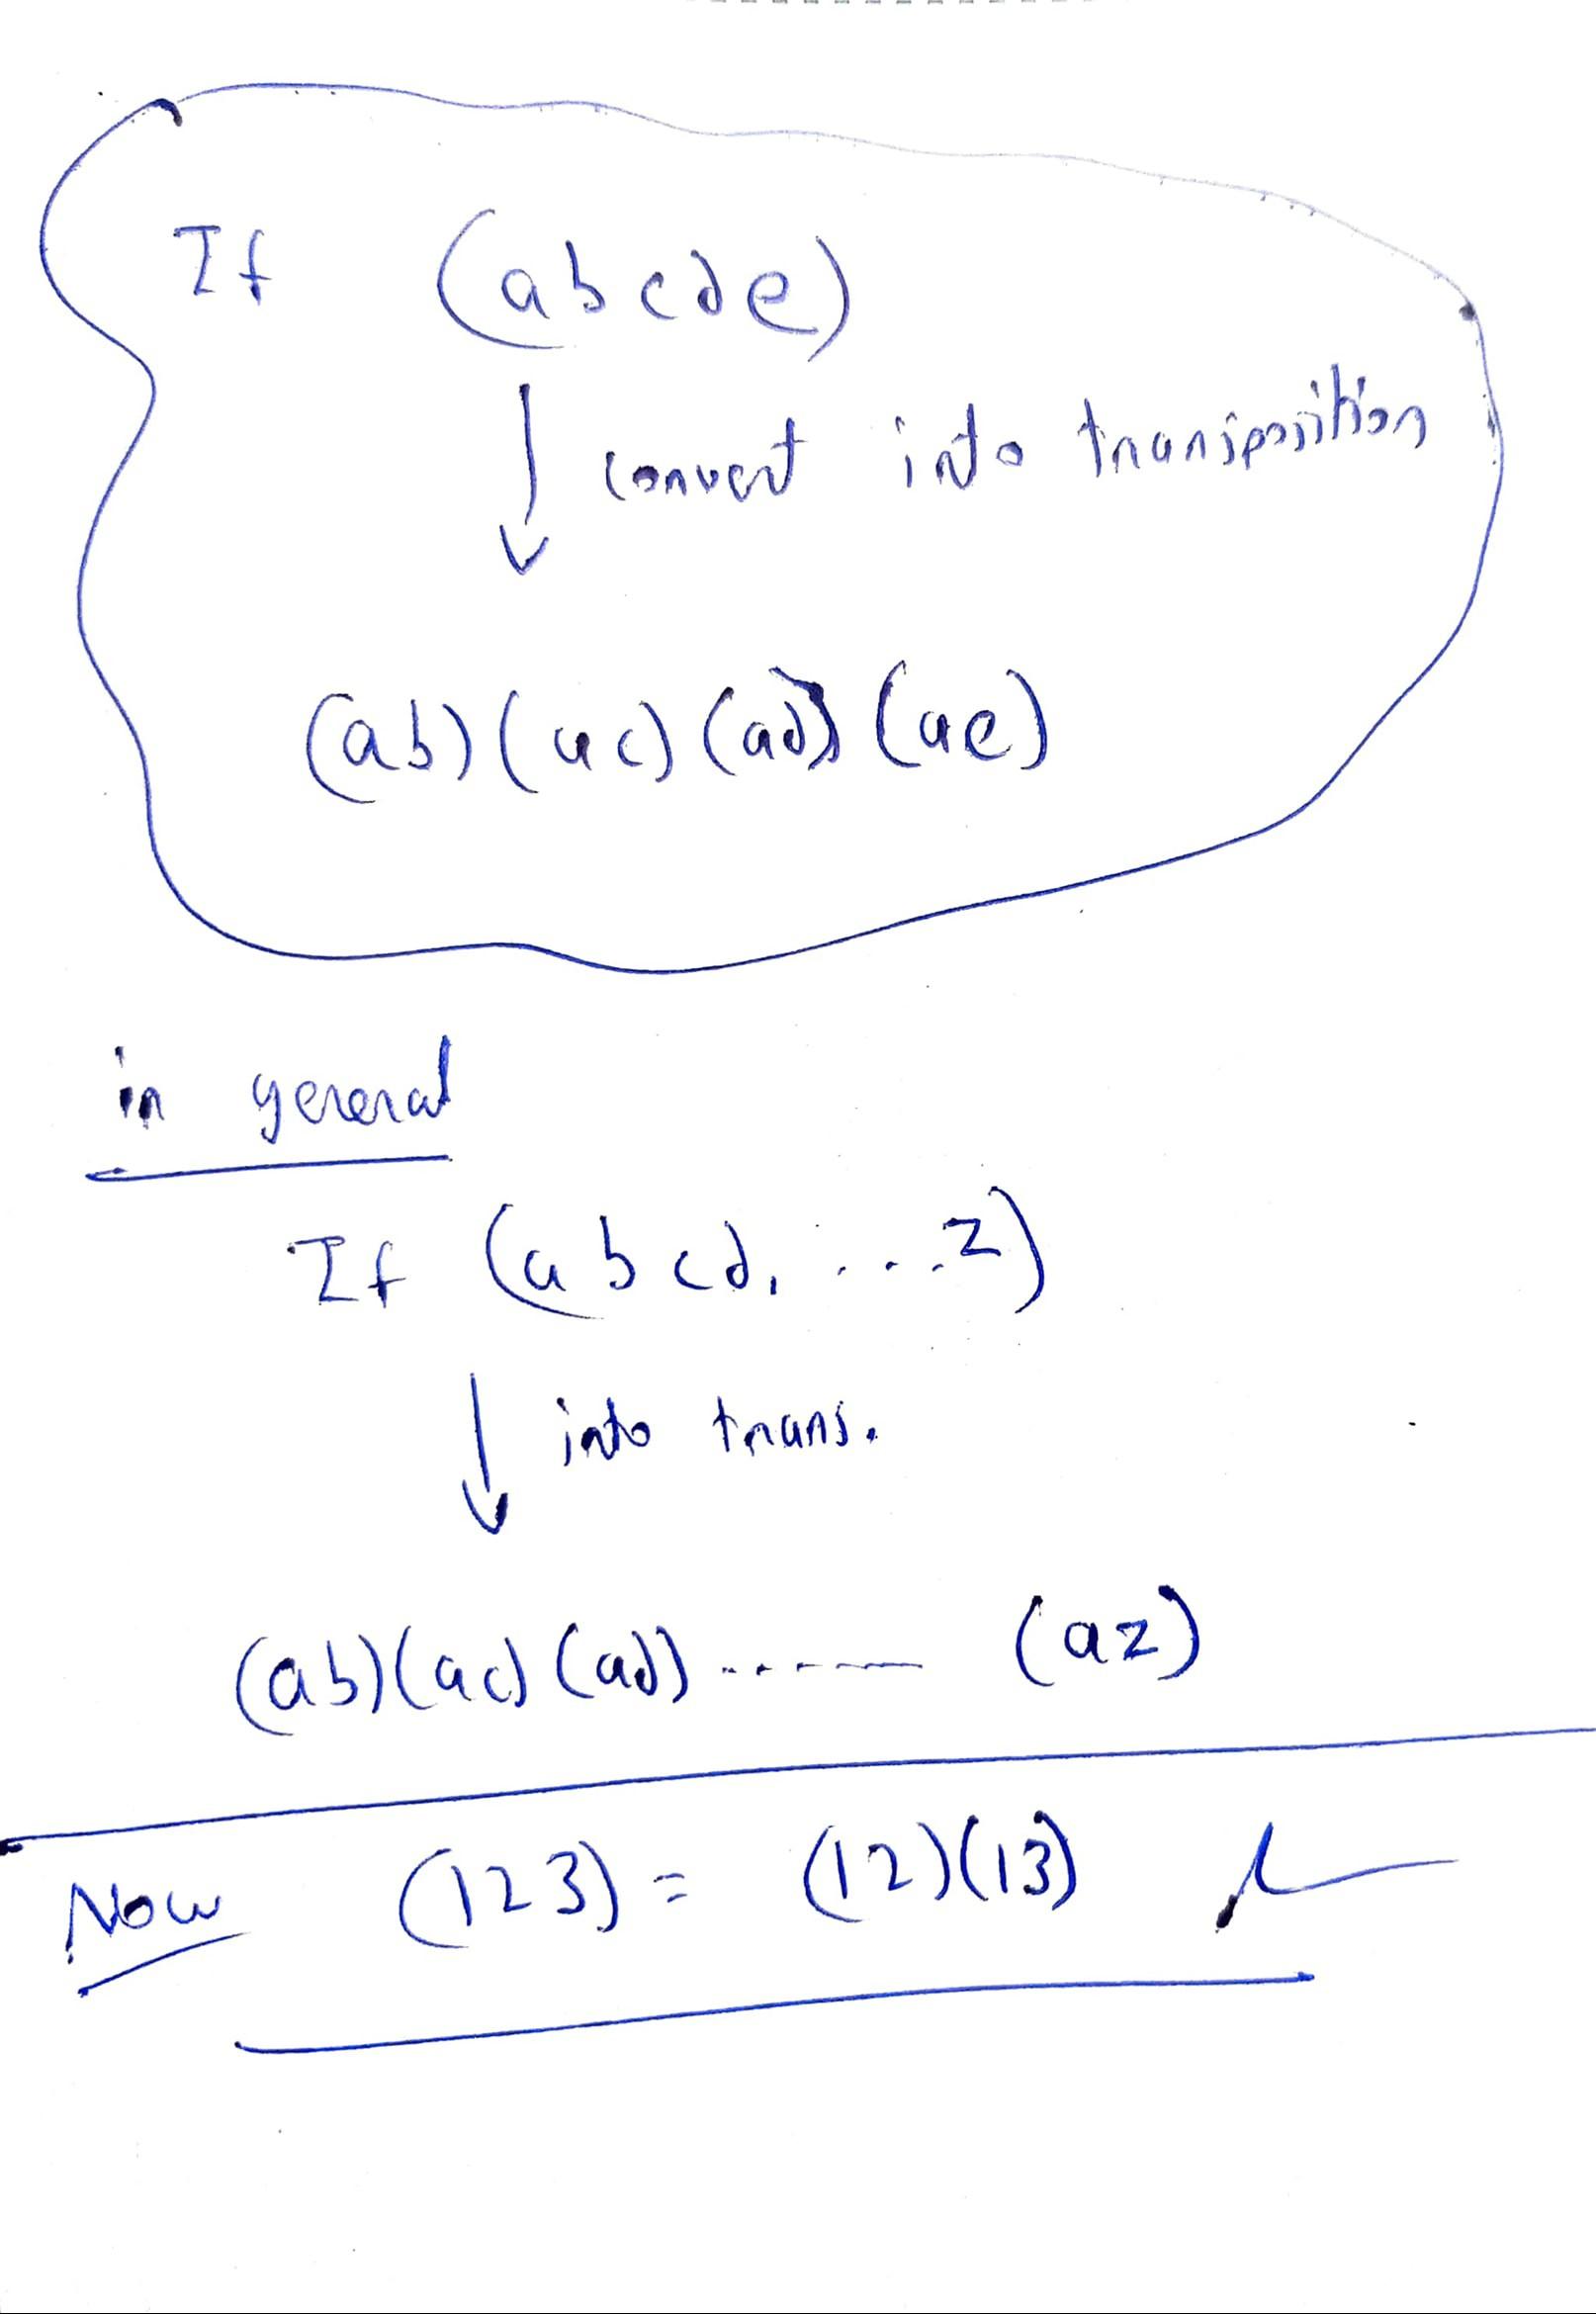 If (abcde)
convert into transposition
(ab)(ac)(ad)(ae)
in general
If (abcd, ....z)
into trans.
(ab)(ac)(ad)....... (az)
Now (123) = (12)(13)